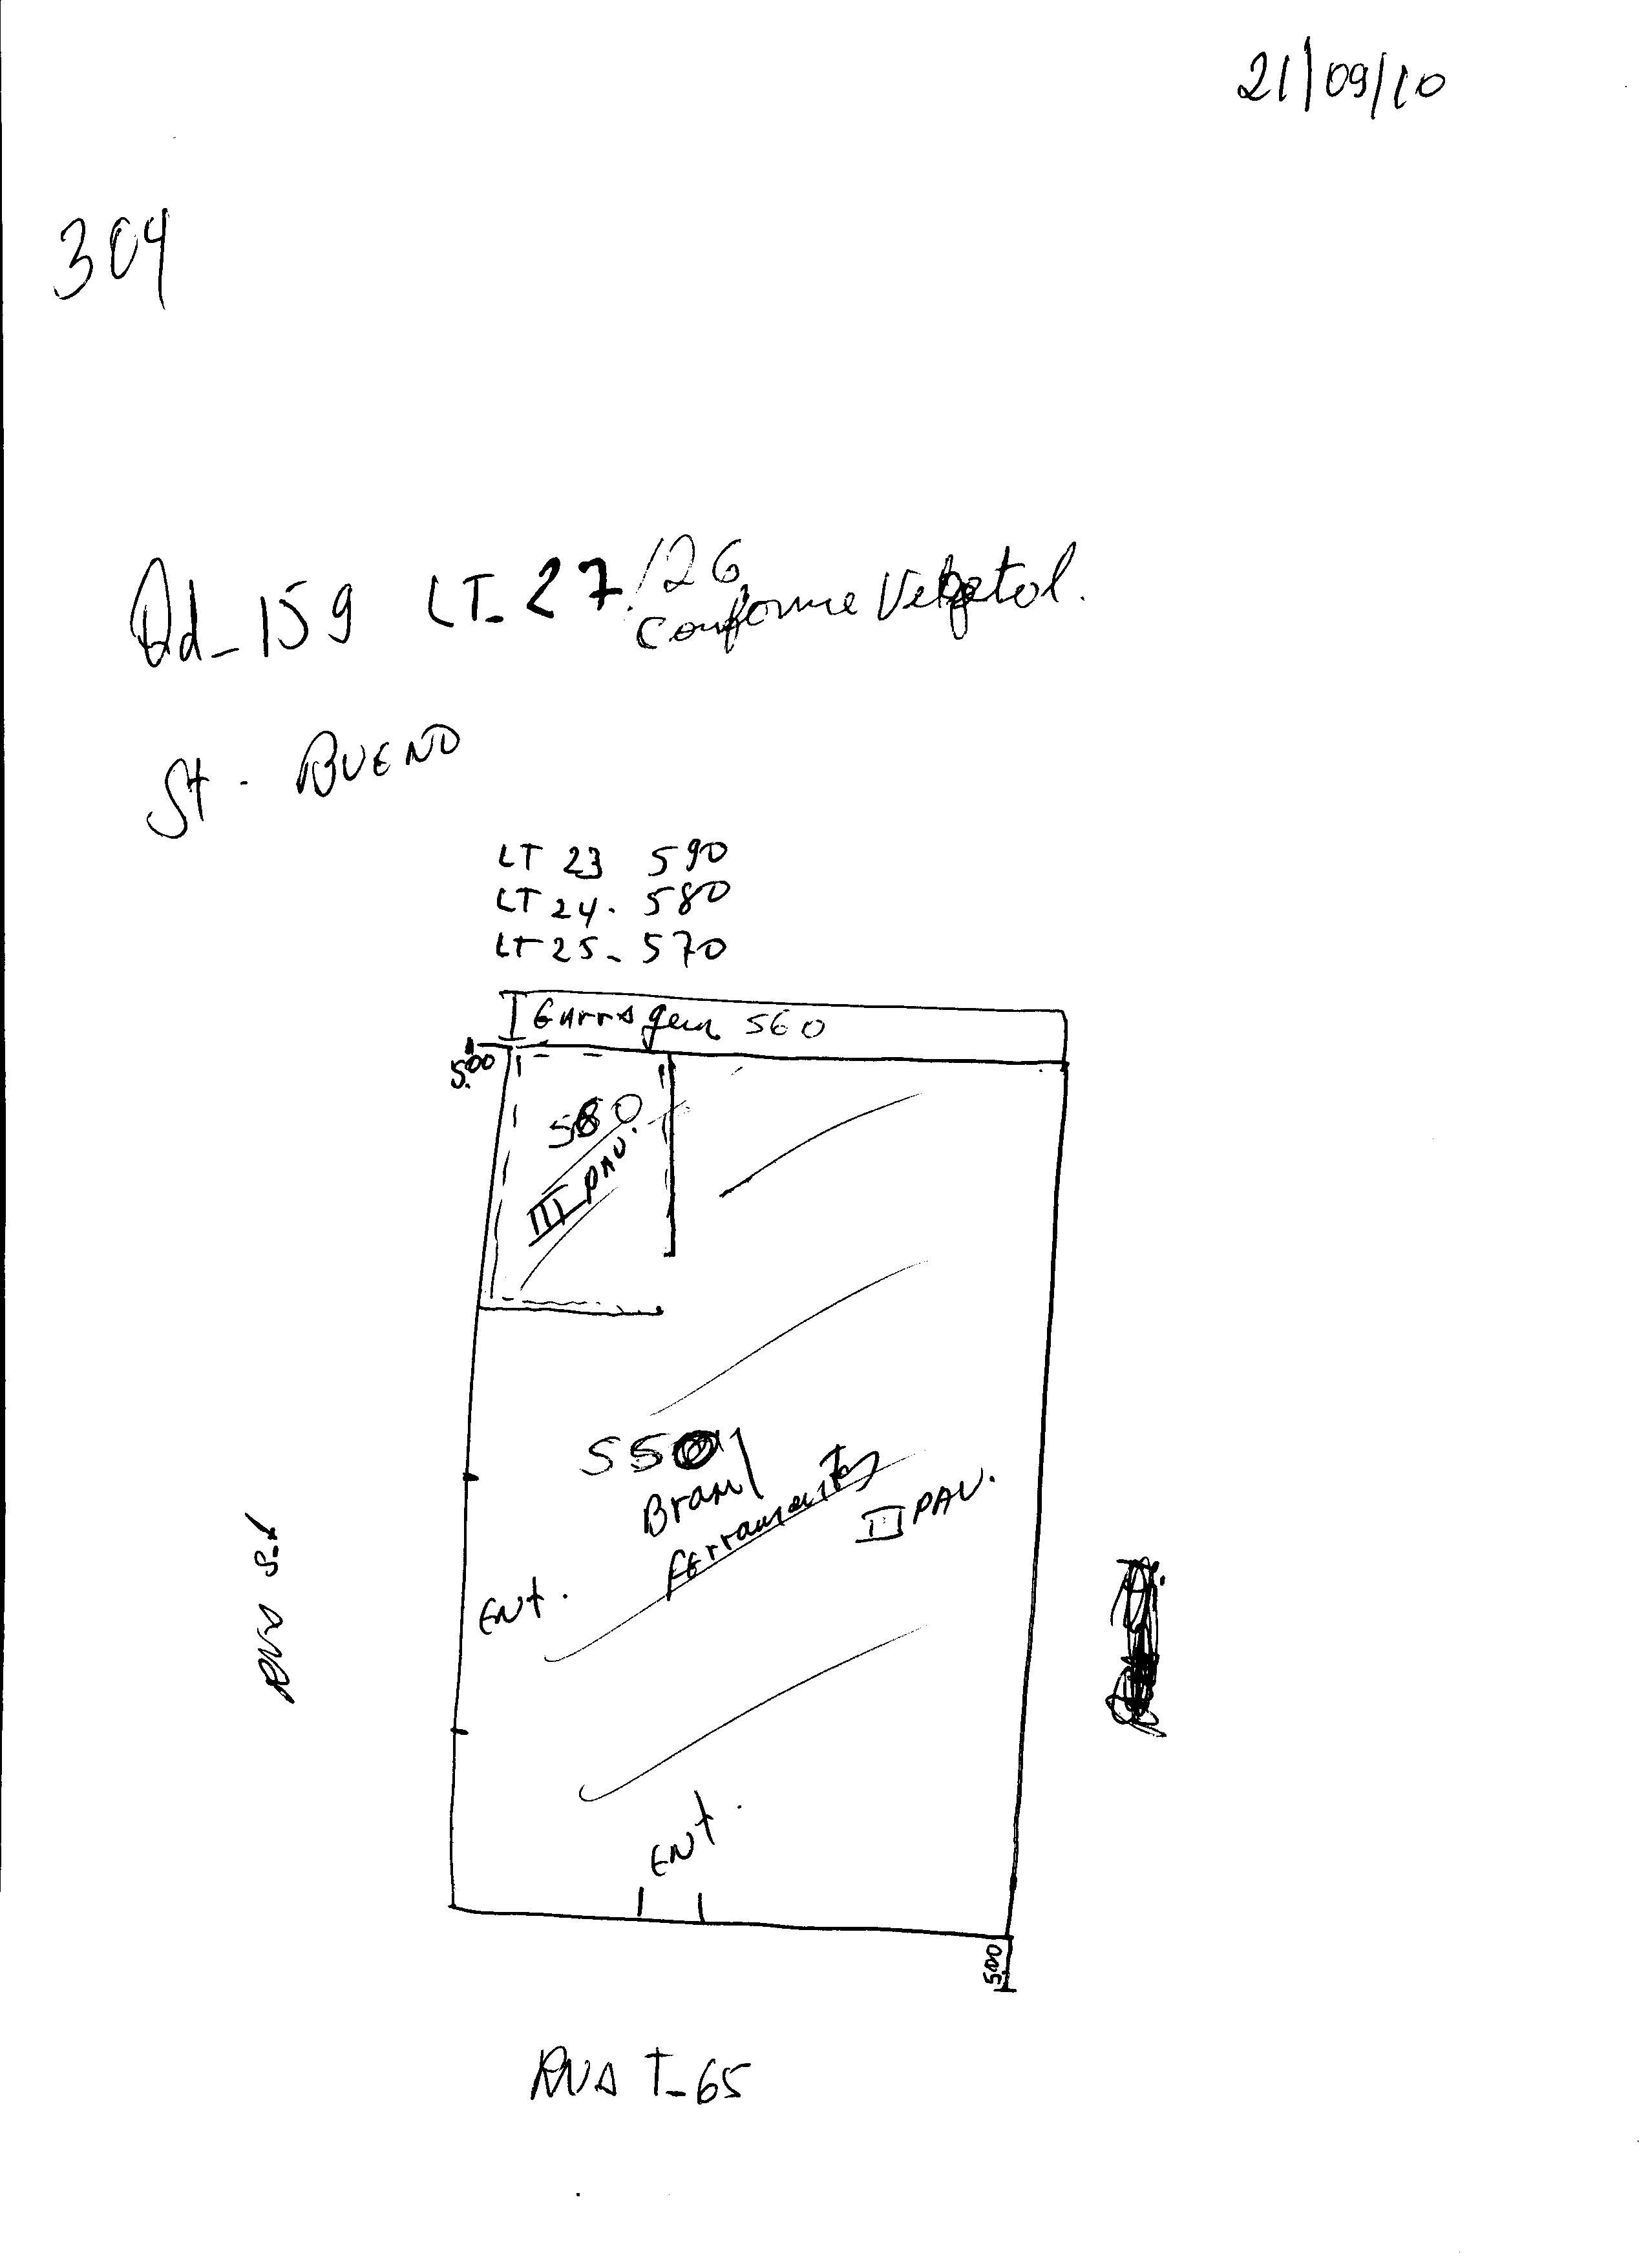 21/09/10
304
Qd_159 LT_27/26
Conforme Vegetal.
St - BUENO
LT 23 590
LT 24. 580
LT 25_ 570
Garragem 560
5.00
580
III PAV.
550
Bram
ferramentas
II PAV.
Ent.
RUA S-1
Ent.
5.00
RUA T_65